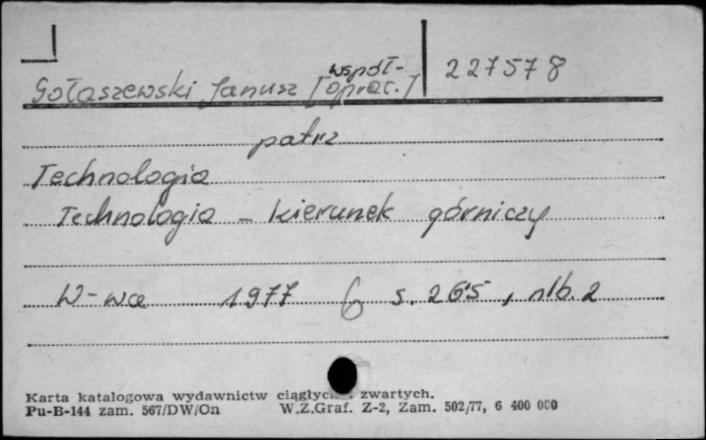 Gołaszewski Janusz [współ-
oprac.] 227578
patrz
Technologia
Technologia - kierunek górniczy
W-wa 1977 s. 265, nlb. 2
Karta katalogowa wydawnictw zwartych.
Pu-B-144 zam. 567/DW/On W.Z.Graf. Z-2, Zam. 502/77, 6 400 000